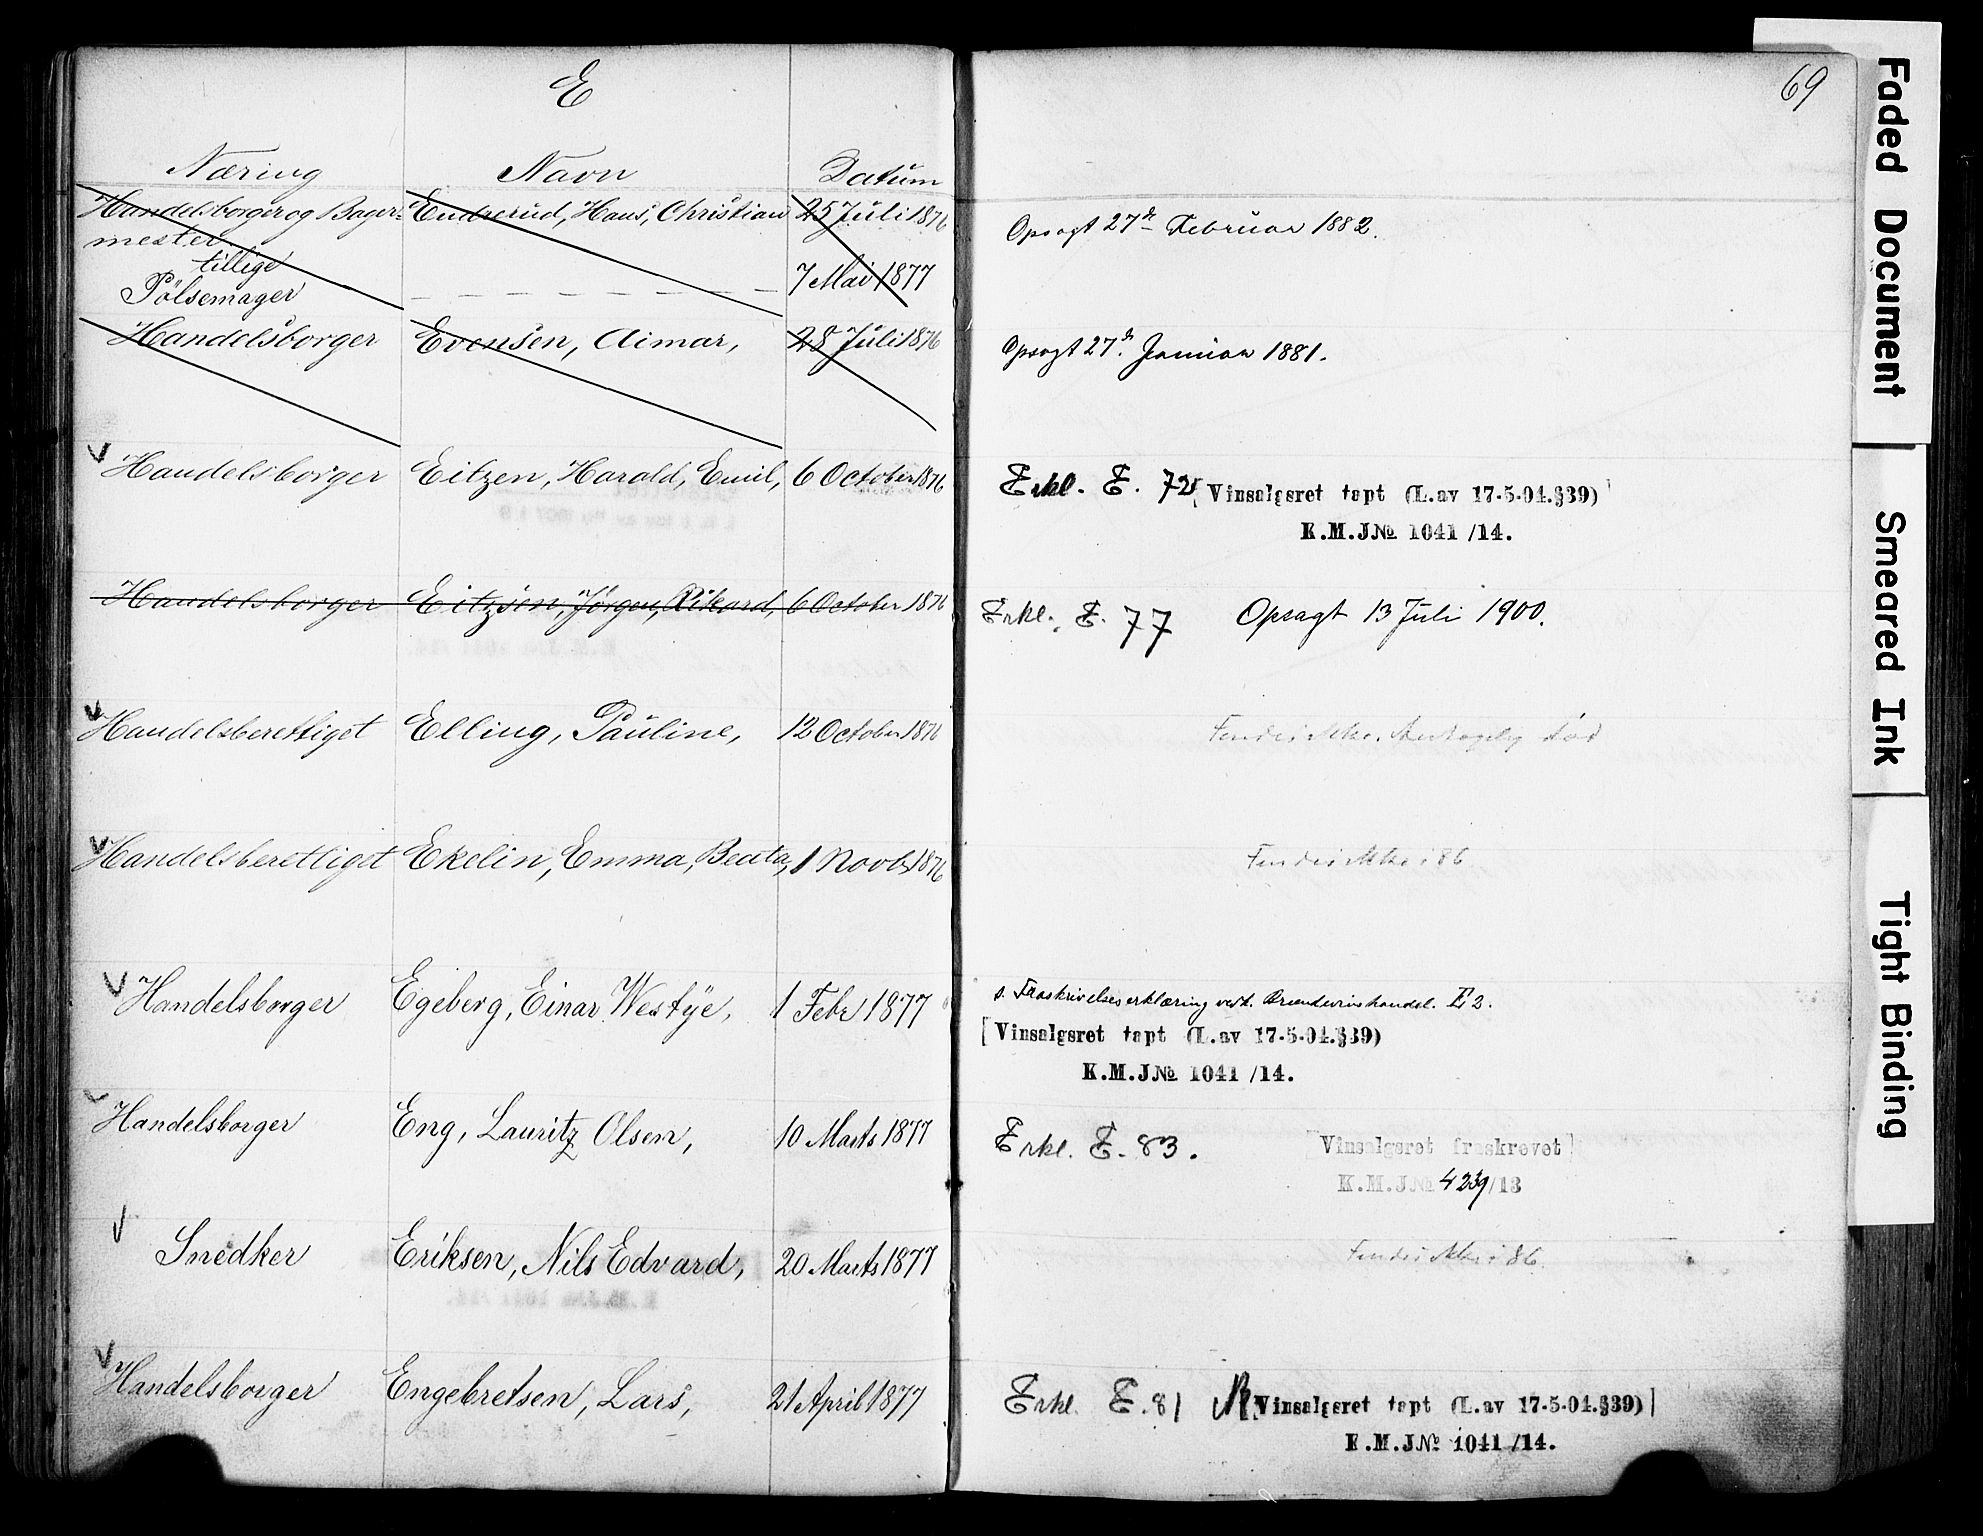 E
69
Næring Navn Datum
Handelsborger og Bager- Endrerud, Hans, Christian 25 Juli 1876 Opsagt 27de Februar 1882.
mester
tillige
Pölsemager 7 Mai 1877
Handelsborger Evensen, Aimar, 28 Juli 1876 Opsagt 27de Januar 1881.
Handelsborger Eitzen, Harald, Emil, 6 October 1876 Erkl. E. 72 [Vinsalgsret tapt (L.av 17-5-04.§39)]
K.M.J№ 1041 /14.
Handelsborger Eitzjen, Jörgen, Rikard, 6 October 1876 Erkl. E. 77 Opsagt 13 Juli 1900.
Handelsberettiget Elling, Pauline, 12 October 1876 Findes ikke. Antagelig död
Handelsberettiget Ekelin, Emma, Beata, 1 Novb 1876 Findes ikke i 86
Handelsborger Egeberg, Einar Westye, 1 Febr 1877 s. Fraskrivelseserklæring vedk. Brændevinshandel. E 2.
[Vinsalgsret tapt (L.av 17-5-04.§39)
K.M.J№ 1041 /14.
Handelsborger Eng, Lauritz Olsen, 10 Marts 1877 Erkl. E. 83. [Vinsalgsret fraskrevet]
K.M.J№ 4239/13
Snedker Eriksen, Nils Edvard, 20 Marts 1877 Findes ikke i 86.
Handelsborger Engebretsen, Lars, 21 April 1877 Erkl. E. 81 Vinsalgsret tapt (L.av 17-5-04.§39)]
K.M.J№ 1041 /14.
Faded Document
Smeared Ink
Tight Binding